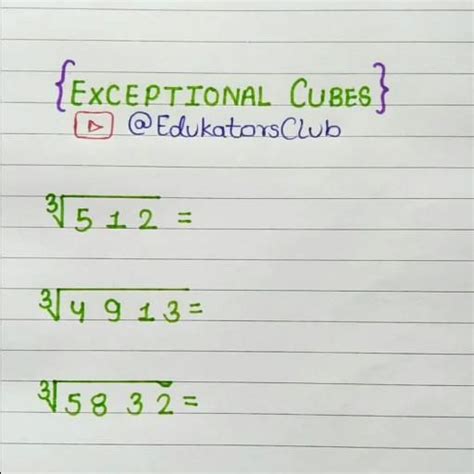 {EXCEPTIONAL CUBES}
@EdukatorsClub
∛512 =
∛4913=
∛5832=